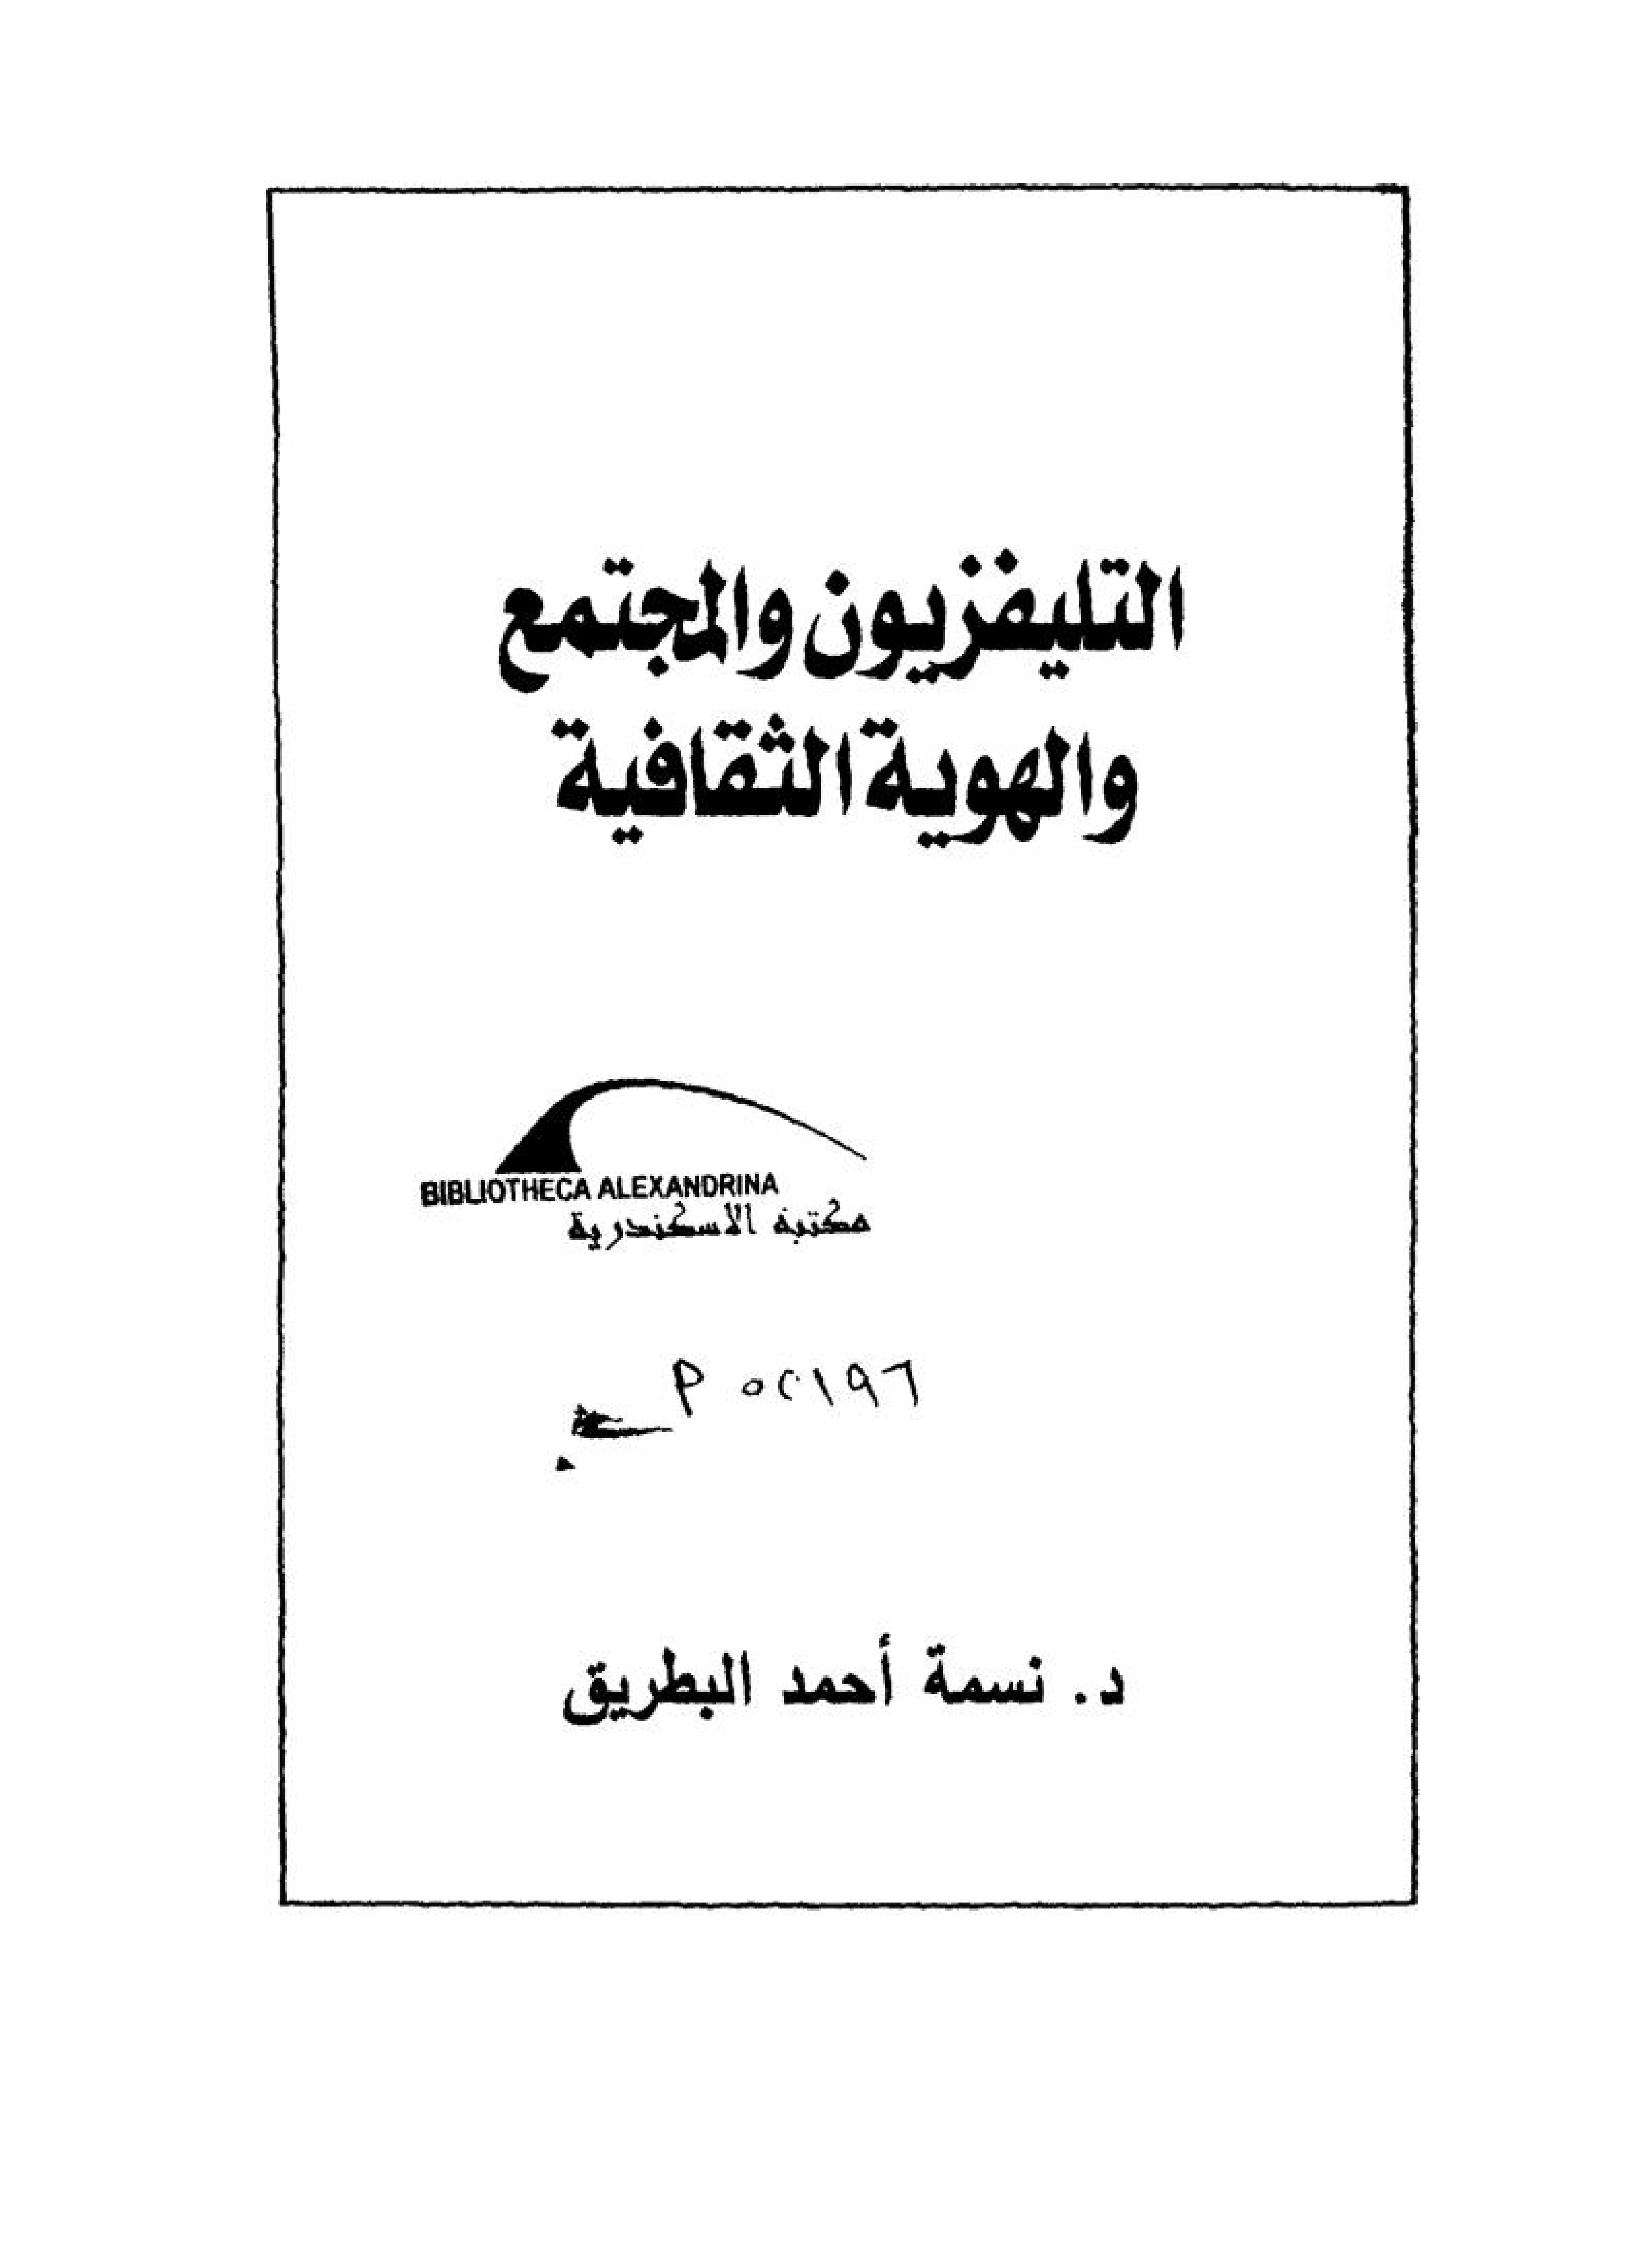 التليفزيون والمجتمع
والهوية الثقافية
BIBLIOTHECA ALEXANDRINA
مكتبة الاسكندرية
د. نسمة أحمد البطريق